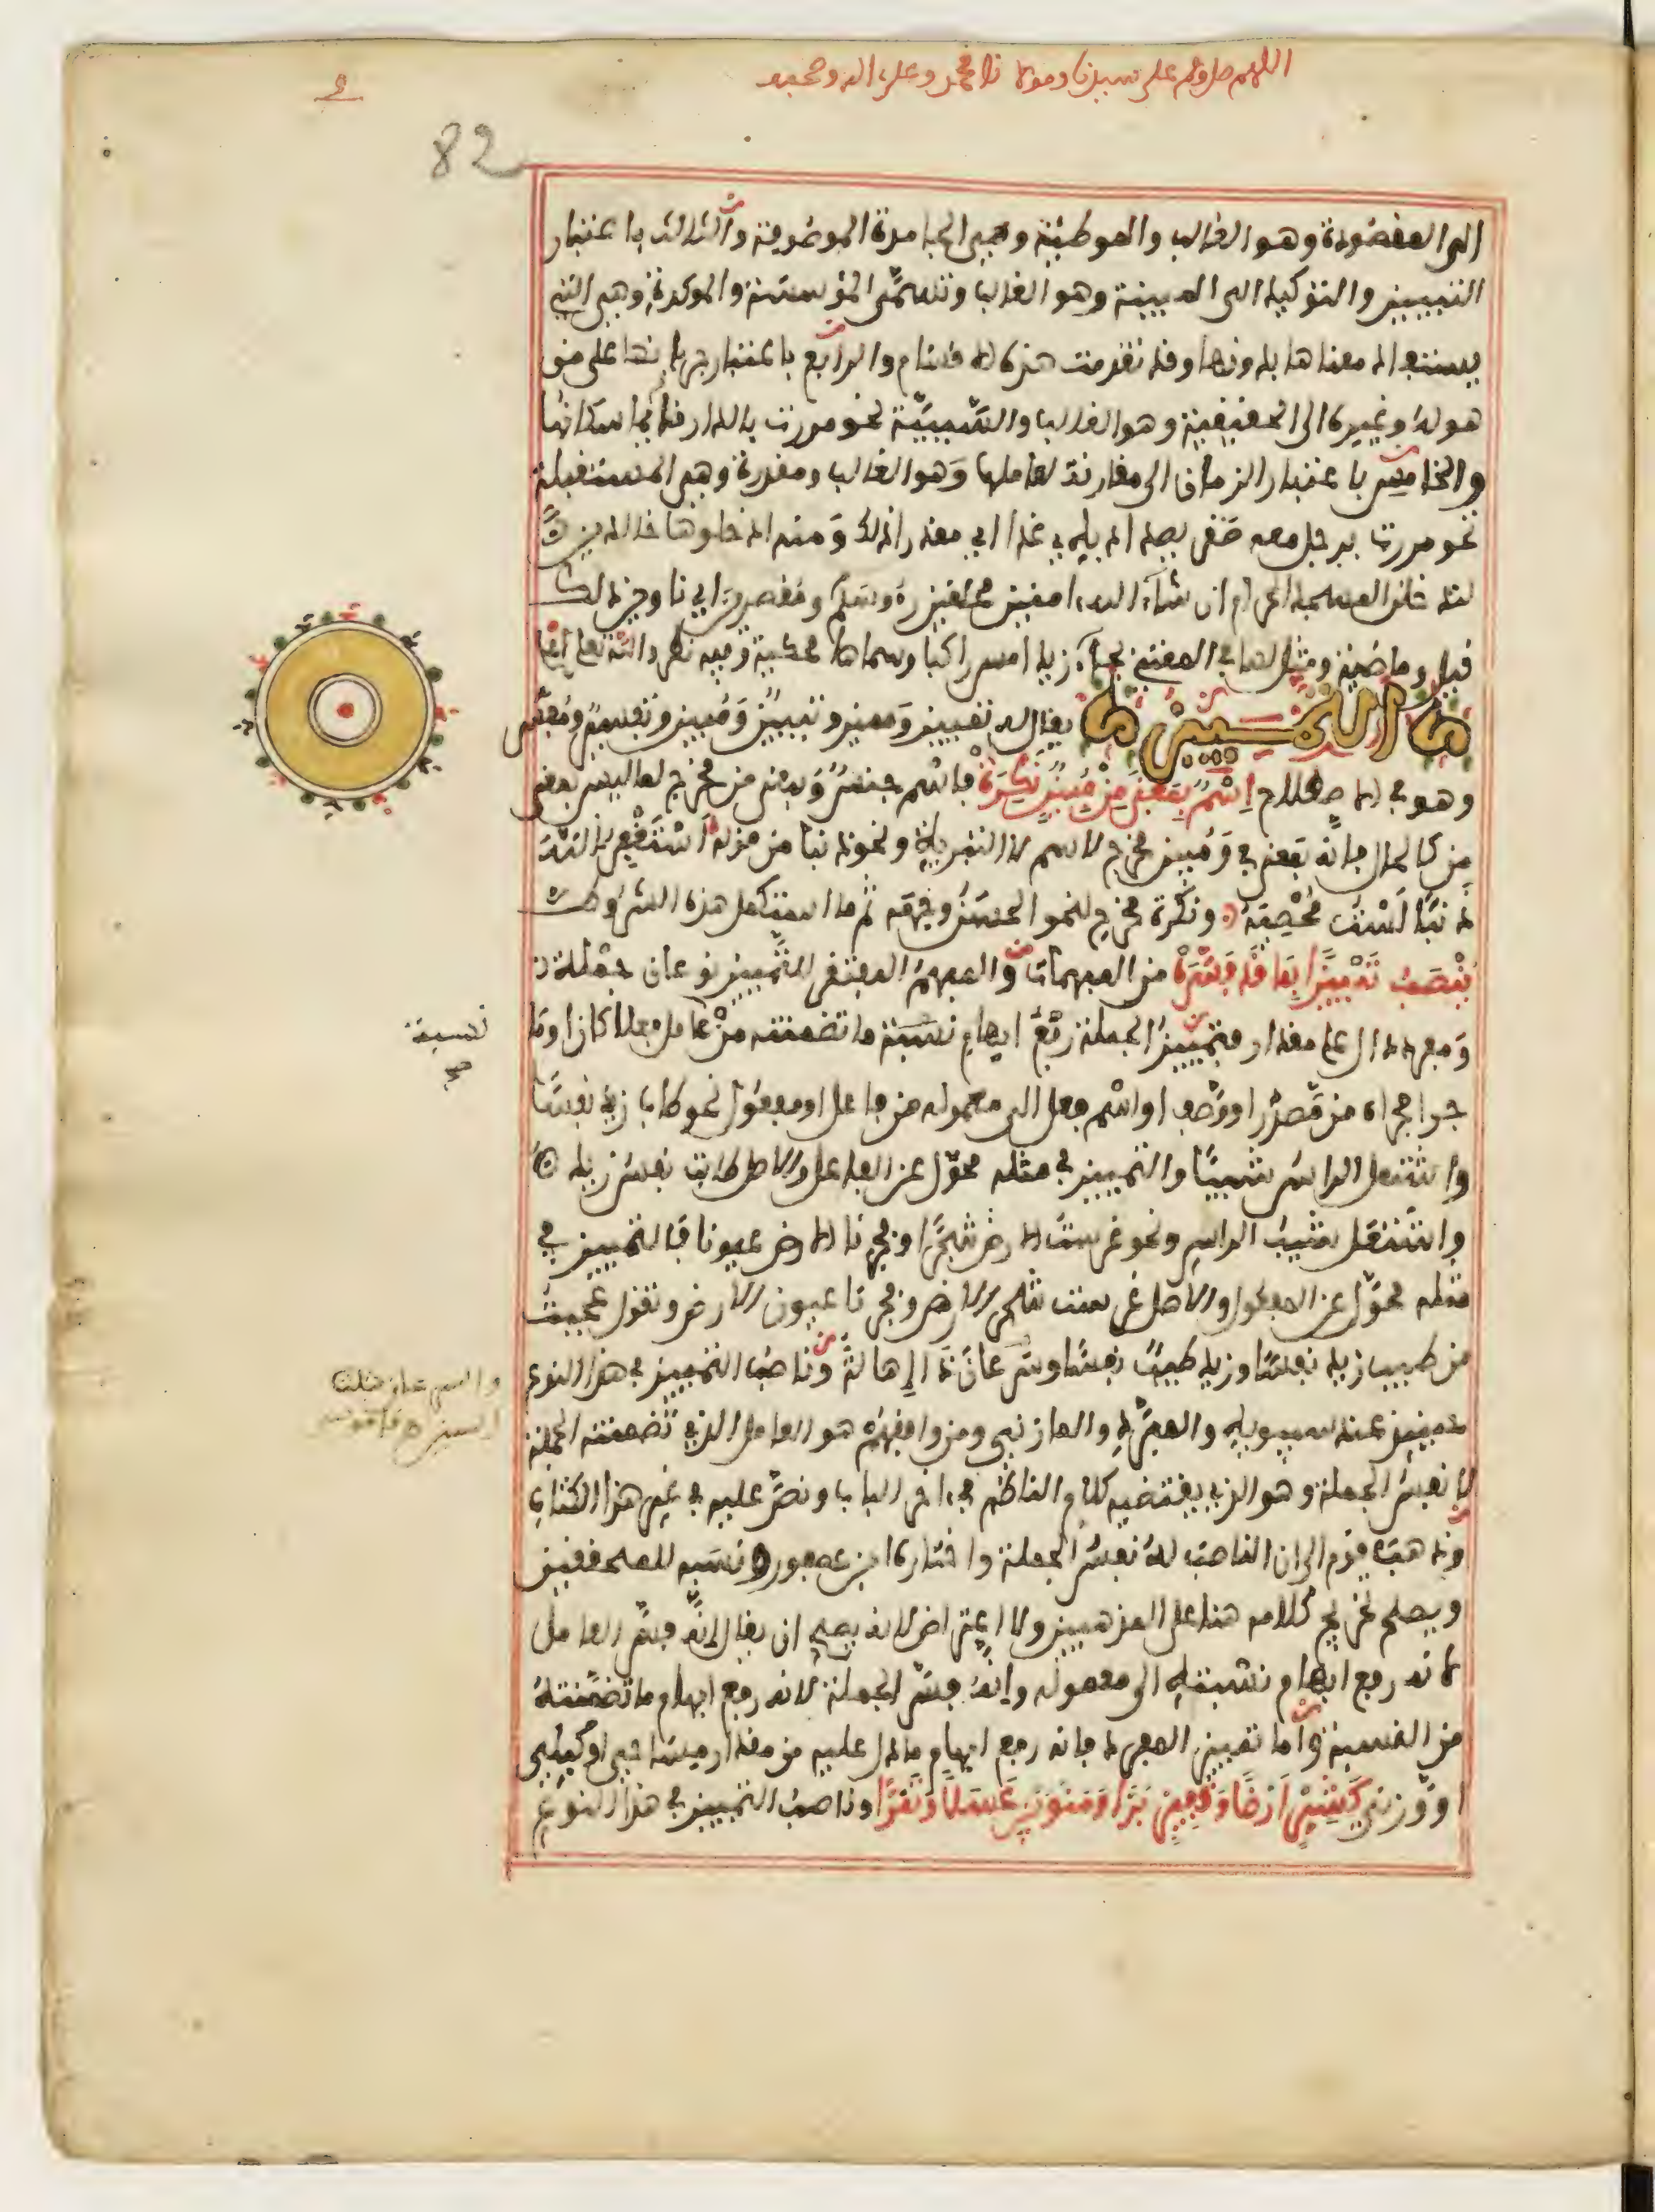 اللهم صل وسلم على سيدنا ومولانا محمد وعلى اله وصحبه
82
الى المقصودة وهو الغالب والموطئة وهي الجامدة الموصوفة والثالث باعتبار
التبيين والتوكيد الى المبينة وهو الغالب وتسمى المؤسسة والموكدة وهي التي
يستفاد معناها بدونها وقد تقدمت هذه الاقسام والرابع باعتبار جريانها على من
هو له وغيره الى الحقيقية وهو الغالب والسببية نحو مررت بالدار قائما سكانها
والخامس باعتبار الزمان الى مقارنة لعاملها وهو الغالب ومقدرة وهي المستقبلة
نحو مررت برجل معه صقر يصيد به غدا اي مقدرا ذلك ومنه ادخلوها خالدين
لتدخلن المسجد الحرام ان شاء الله امنين محلقين رءوسكم ومقصرين اي ناوين ذلك
قيل وماضية ومثل لها في المغني بجاء زيد امس راكبا وسماها محكية وفيه نظر والله تعالى اعلم
التمييز يقال له تمييز ومميز وتبيين ومبين وتفسير ومفسر
وهو في الاصطلاح اسم بمعنى من مبين نكرة فاسم جنس وبمعنى من مخرج لما ليس بمعنى
من كالحال فانه بمعنى في ومبين مخرج لاسم لا التبرية ونحو ذنبا من قوله استغفر الله
ذنبا لست محصيه ونكرة مخرج لنحو الحسن وجهه ثم ما استكمل هذه الشروط
ينصب تمييزا بما قد فسره من المبهمات والمبهم المفتقر للتمييز نوعان جملة
ومفرد دال على مقدار فتمييز الجملة رفع ابهام نسبة ما تضمنته من عامل فعلا كان او ما
جرا مجراه من مصدر او وصف او اسم فعل الى معموله من فاعل او مفعول نحو طاب زيد نفسا
واشتعل الراس شيبا والتمييز في مثله محول عن الفاعل والاصل طابت نفس زيد
واشتعل شيب الراس ونحو غرست الارض شجرا وفجرنا الارض عيونا فالتمييز في
مثله محول عن المفعول والاصل غرست شجر الارض وفجرنا عيون الارض وتقول عجبت
من طيب زيد نفسا وزيد طيب نفسا وسرعان ذا اهالة وناصب التمييز في هذا النوع
عند سيبويه والمبرد والمازني ومن وافقهم هو العامل الذي تضمنته الجملة
لا نفس الجملة وهو الذي يقتضيه كلام الناظم في اخر الباب ونص عليه في غير هذا الكتاب
وذهب قوم الى ان الناصب له نفس الجملة واختاره ابن عصفور ونسبه للمحققين
ويصلح تخريج كلامه هنا على المذهبين ولا اعتراض لانه يصلح ان يقال انه فسر العامل
لانه رفع ابهام نسبته الى معموله وانه فسر الجملة لانه رفع ابهام ما تضمنته
من النسبة واما تمييز المفرد فانه رفع ابهام ما دل عليه من مقدار مساحي او كيلي
او وزني كشبر ارضا وقفيز برا ومنوين عسلا وتمرا وناصب التمييز في هذا النوع
نسبة
صح